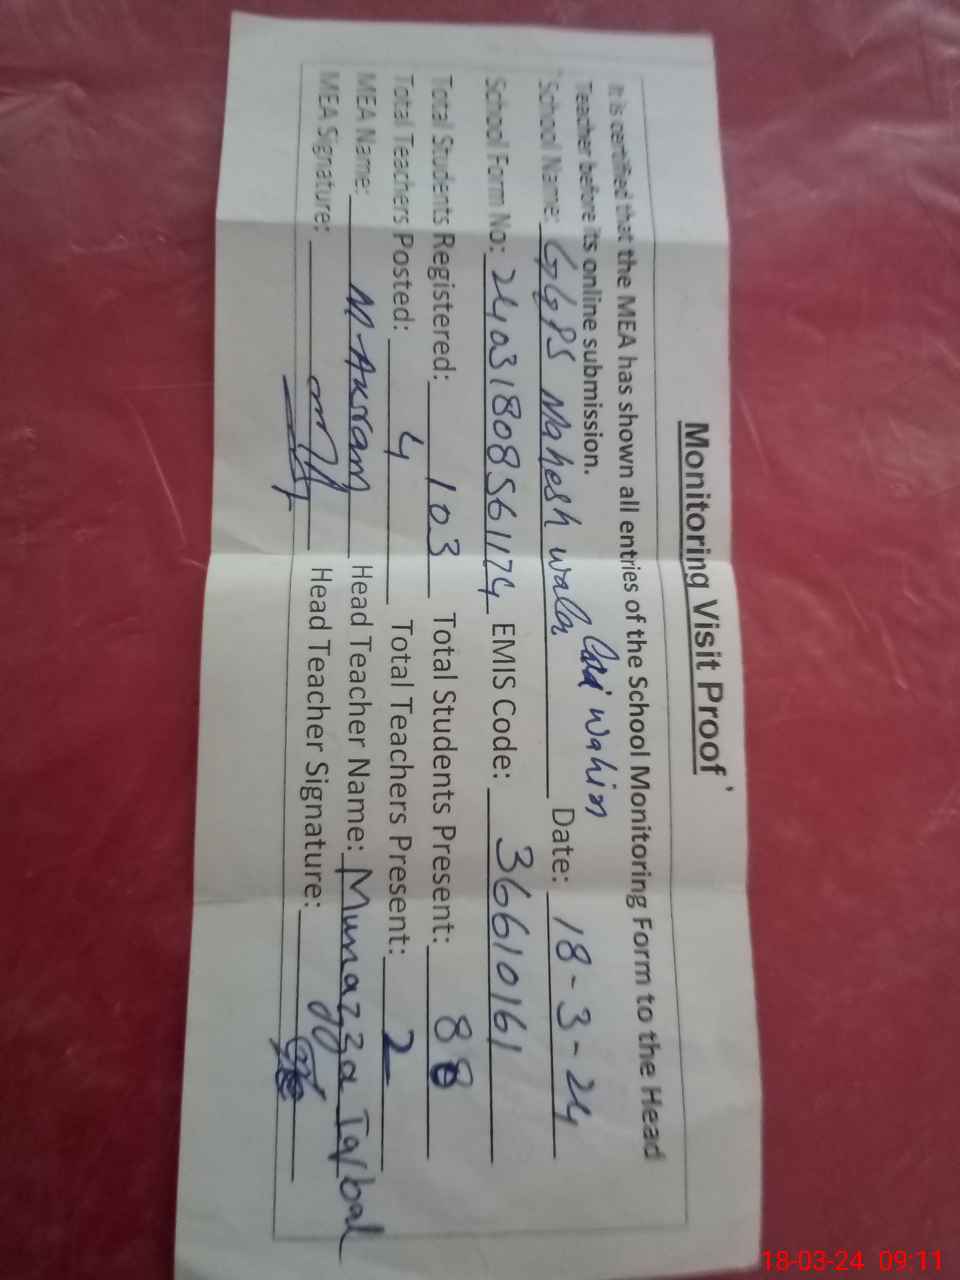 Monitoring Visit Proof
It is certified that the MEA has shown all entries of the School Monitoring Form to the Head
Teacher before its online submission.
School Name: GGPS Mahesh wala Wahim Date: 18-3-24
School Form No: 24031808561174 EMIS Code: 36610161
Total Students Registered: 103 Total Students Present: 88
Total Teachers Posted: 4 Total Teachers Present: 2
MEA Name: M. Akram Head Teacher Name: Munazza Iqbal
MEA Signature: Head Teacher Signature:
18-03-24 09:11